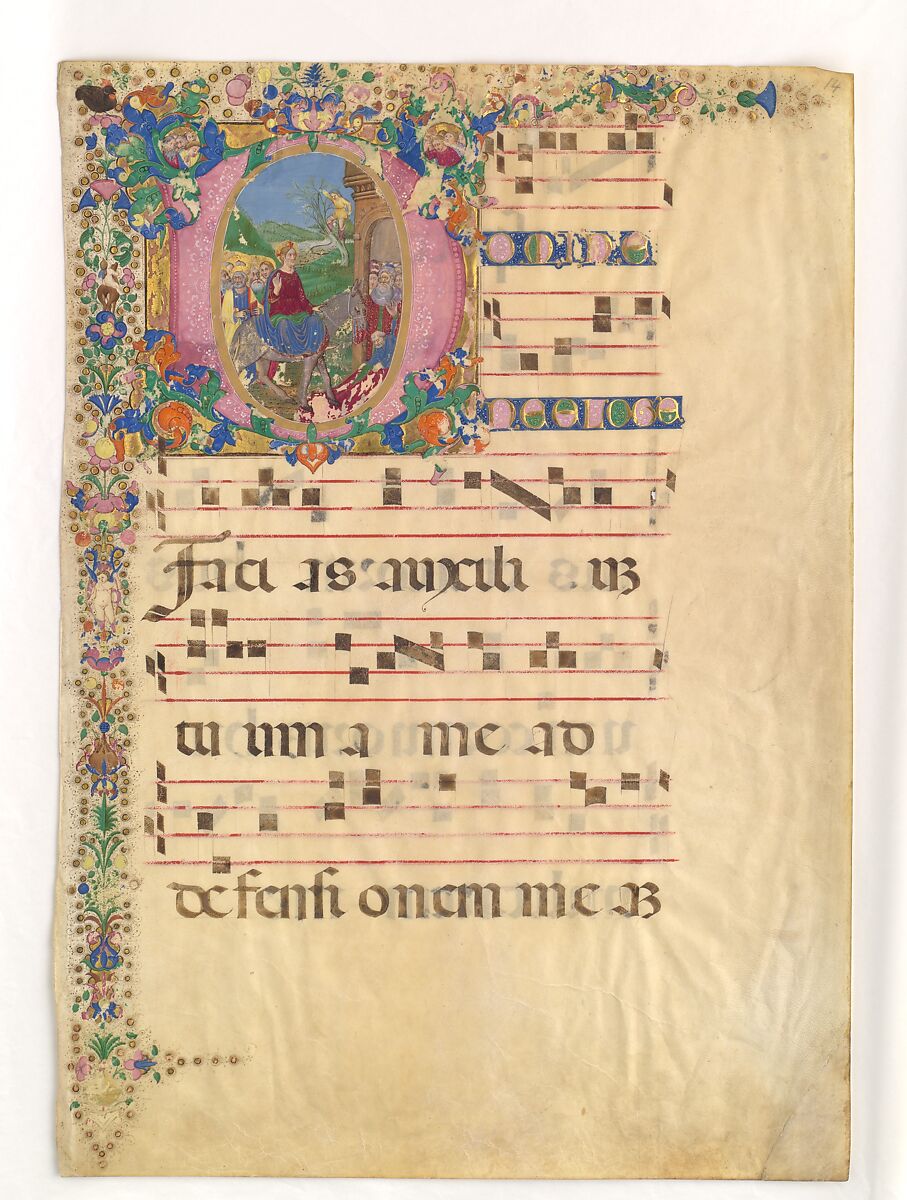 14
DOMINE
NE LONGE
Faci as auxili um
tu um a me ad
de fensi onem me am